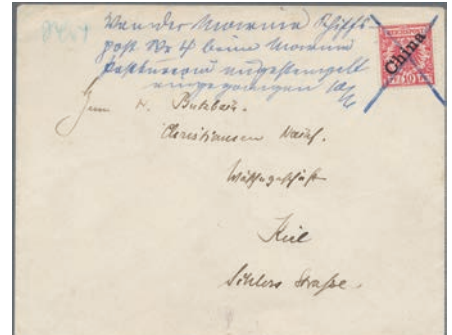 Von der Marine Schiffs
post Nr 4 beim Marine
postbureau ungestempelt
eingegangen
REICHSPOST
China
10
Herrn H. Butzbach.
Christiansen Nachf.
Wäschegeschäft
Kiel
Schloss Straße.